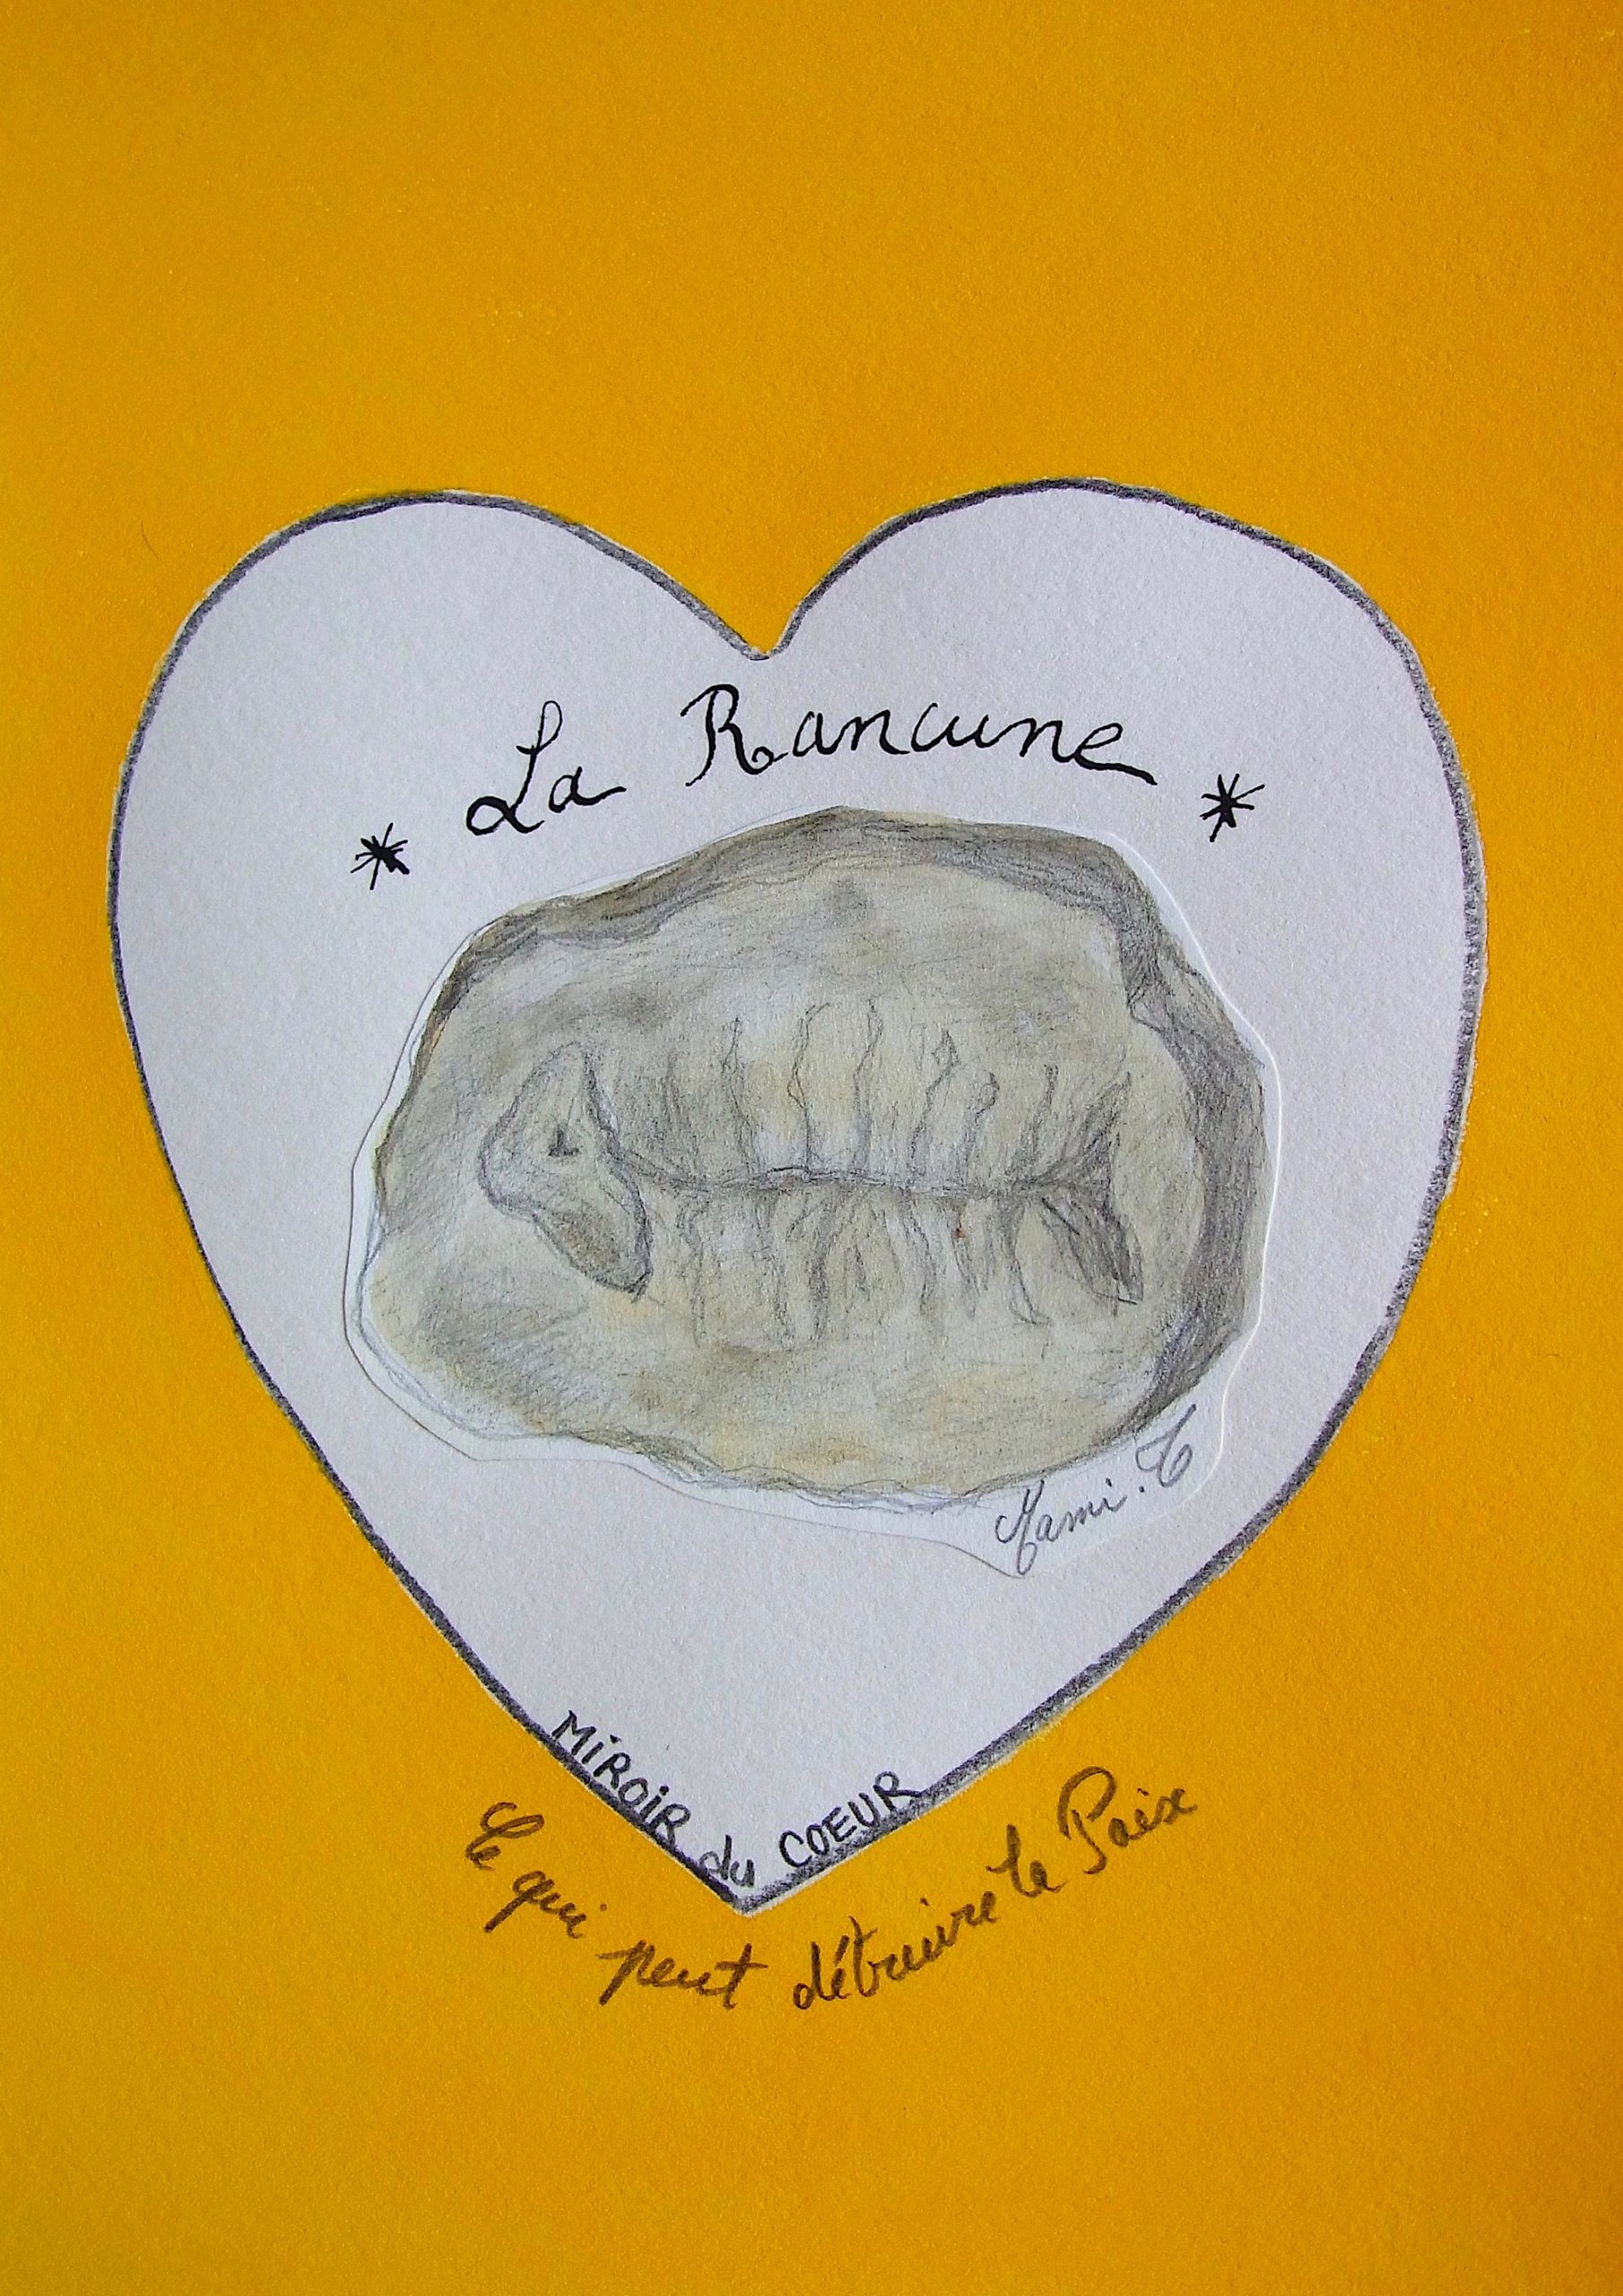 * La Rancune *
Mami. T
MiROiR du COEUR
Ce qui peut détruire la Paix